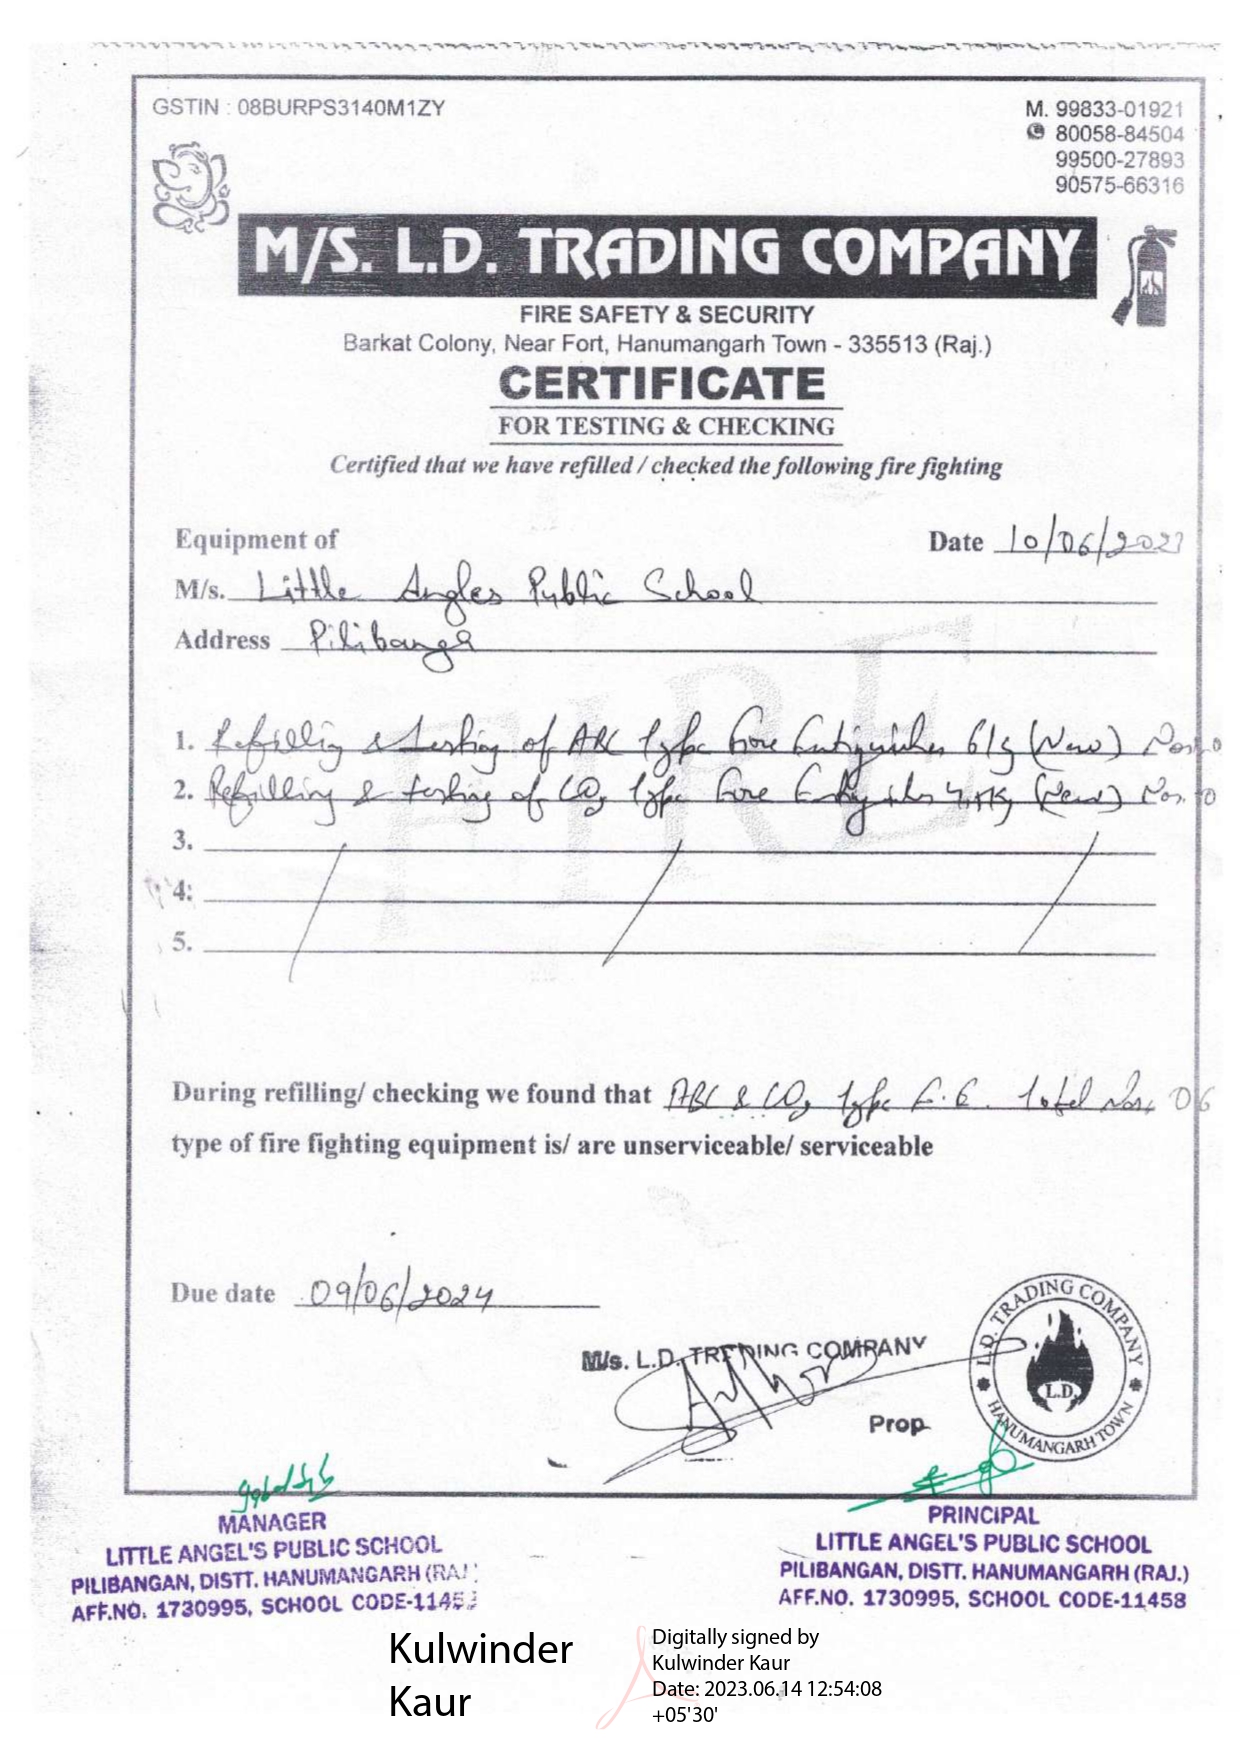 GSTIN : 08BURPS3140M1ZY
M. 99833-01921
80058-84504
99500-27893
90575-66316
M/S. L.D. TRADING COMPANY
FIRE SAFETY & SECURITY
Barkat Colony, Near Fort, Hanumangarh Town - 335513 (Raj.)
CERTIFICATE
FOR TESTING & CHECKING
Certified that we have refilled / checked the following fire fighting
Equipment of
Date 10/06/2023
M/s. Little Angles Public School
Address Pilibanga
FIRE
1. Refilling & testing of ABC type Fire Extinguisher (New)
2. Refilling & testing of CO2 type Fire Extinguisher (New)
3.
4.
5.
During refilling/ checking we found that ABC & CO2 type F.E. Total Nos. 06
type of fire fighting equipment is/ are unserviceable/ serviceable
Due date 09/06/2024
M/s. L.D. TREDING COMPANY
Prop
L.D. TRADING COMPANY
L.D.
HANUMANGARH TOWN
MANAGER
LITTLE ANGEL'S PUBLIC SCHOOL
PILIBANGAN, DISTT. HANUMANGARH (RAJ.)
AFF.NO. 1730995, SCHOOL CODE-11458
PRINCIPAL
LITTLE ANGEL'S PUBLIC SCHOOL
PILIBANGAN, DISTT. HANUMANGARH (RAJ.)
AFF.NO. 1730995, SCHOOL CODE-11458
Kulwinder
Kaur
Digitally signed by
Kulwinder Kaur
Date: 2023.06.14 12:54:08
+05'30'